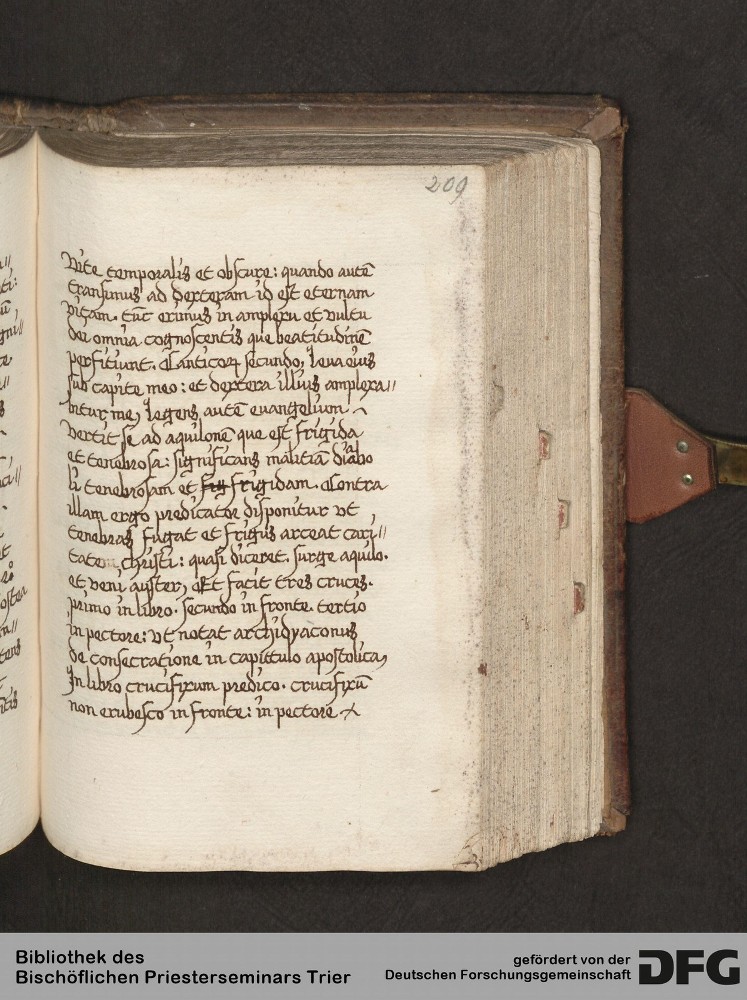 209
Vite temporalis et obscure: quando autē
transimus ad dexteram id est eternam
vitam. tūc erimus in amplexu et vultu
dei omnia cognoscentis que beatitudinē
perfitiunt. Canticoꝝ secundo, leva eius
sub capite meo: et dextera illius amplexa//
bitur me, legens autē euangelium
vertit se ad aquilonē que est frigida
et tenebrosa: significans malitiā diabo
li tenebrosam et frigidam. Contra
illam ergo predicatio disponitur vt
tenebras fugat et frigus arceat cari//
tatem christi: quasi diceret. surge aquilo.
et veni auster, Et facit tres cruces.
primo in libro. secundo in fronte. tertio
in pectore: vt notat archidyaconus
de consecratione in capittulo apostolica,
In libro crucifixum predico. crucifixū
non erubesco in fronte: in pectore
Bibliothek des
Bischöflichen Priesterseminars Trier
gefördert von der
Deutschen Forschungsgemeinschaft
DFG